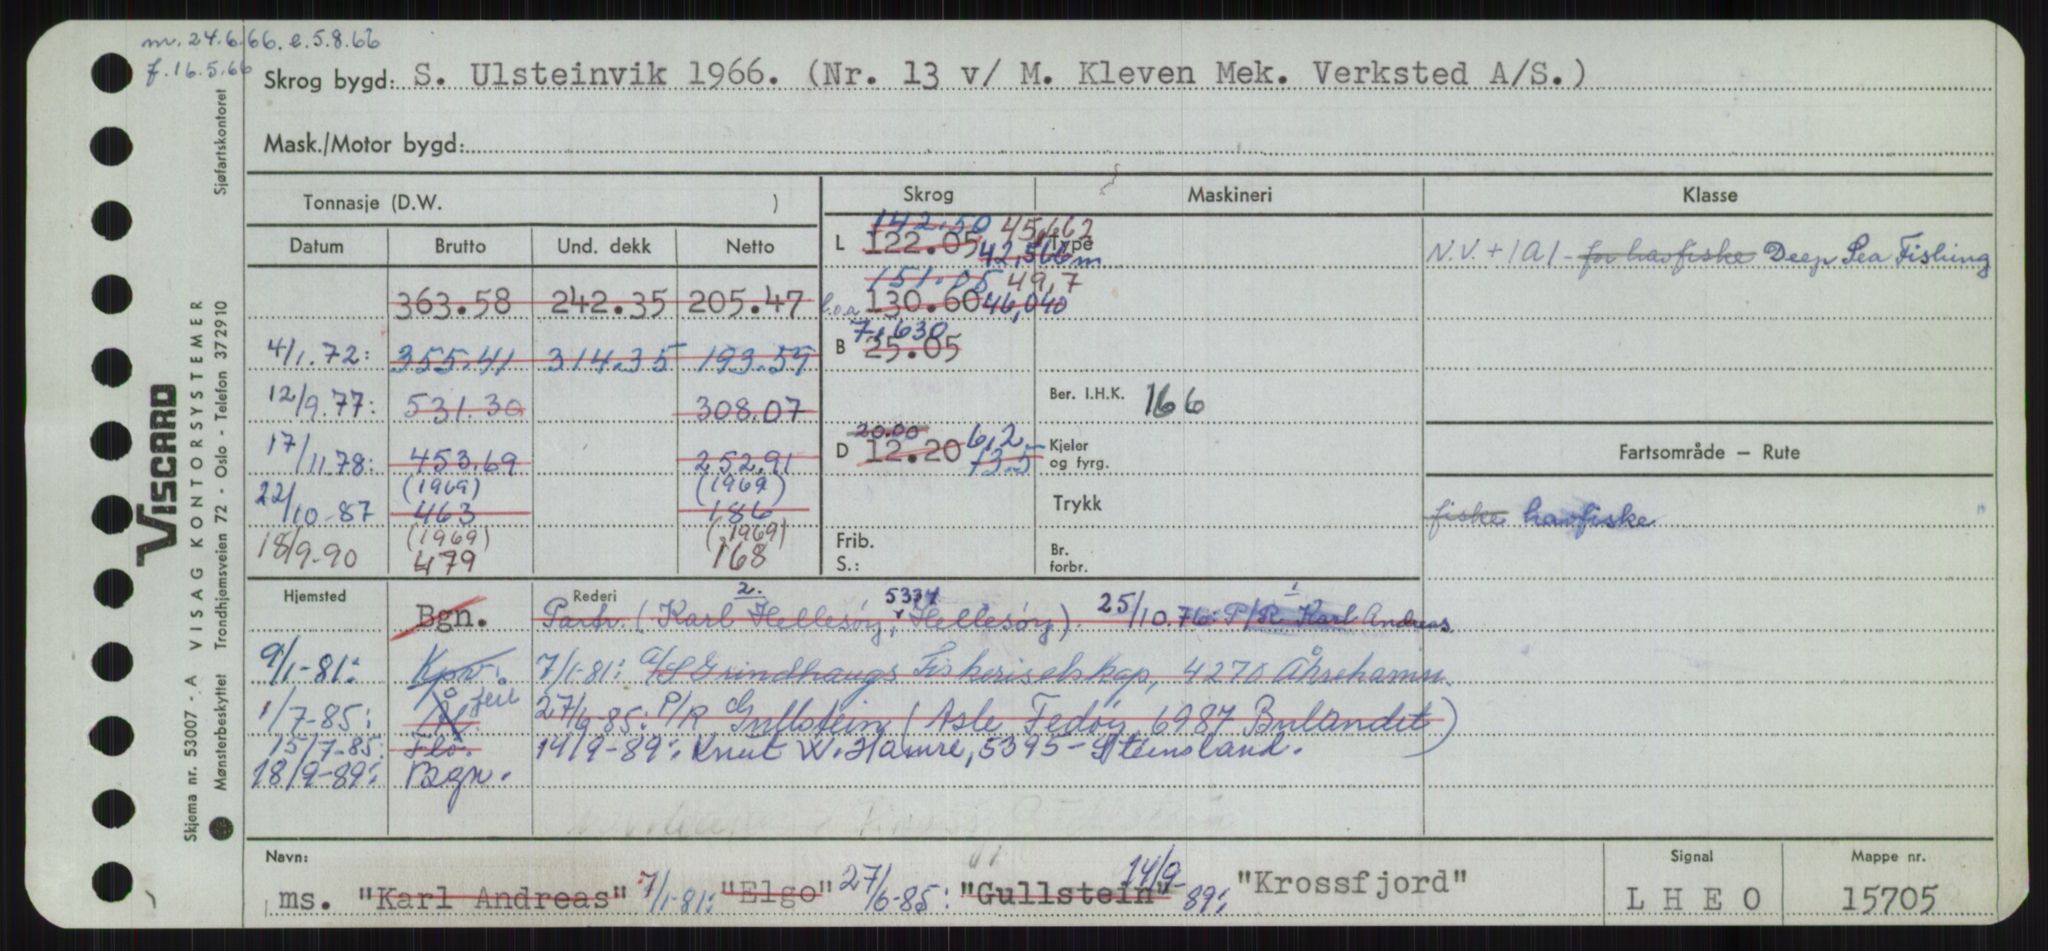 m. 24.6.66. e. 5.8.66
f. 16.5.66
Skrog bygd: S. Ulsteinvik 1966. (Nr. 13 v/ M. Kleven Mek. Verksted A/S.)
Mask./Motor bygd:
Tonnasje (D.W. )
Skrog Maskineri Klasse
Datum Brutto Und. dekk Netto
363.58 242.35 205.47
4/1.72: 355.41 314.35 193.59
12/9.77: 531.30 308.07
17/11.78: 453.69 252.91
(1969) (1969)
22/10-87 463 186
(1969) (1969)
18/9-90 479 168
142.50 45,662
L 122.05 42,566 m
Type
151.05 49,7
l.o.a 130.60 46,040
7,630
B 25.05
Ber. I.H.K. 166
20.00 6,2
D 12.20 13.5
Kjeler
og fyrg.
Trykk
Frib.
S.:
Br.
forbr.
N.V. + 1A1 - for havfiske Deep Sea Fishing
Fartsområde – Rute
fiske havfiske
Hjemsted Rederi
2. 5334 1
Bgn. Partr. (Karl Hellesøy, Hellesøy). 25/10.76: P/R Karl Andreas
9/1-81: Kpv. 7/1-81: A/S Grindhaugs Fiskeriselskap, 4270 Åkrehamn.
feil
1/7-85: Ål. 27/6-85: P/R Gullstein (Asle Fedøy, 6987 Bulandet)
15/7-85: Flo. 14/9-89: Knut W. Hamre, 5395 - Steinsland.
18/9-89: Bgn.
Navn:
ms. "Karl Andreas" 7/1-81: "Elgo" 27/6-85: "Gullstein" 14/9-89: "Krossfjord"
Signal
L H E O
Mappe nr.
15705
VISCARD
VISAG KONTORSYSTEMER
Skjema nr. 53007 - A
Mønsterbeskyttet Trondhjemsveien 72 - Oslo - Telefon 372910
Sjøfartskontoret